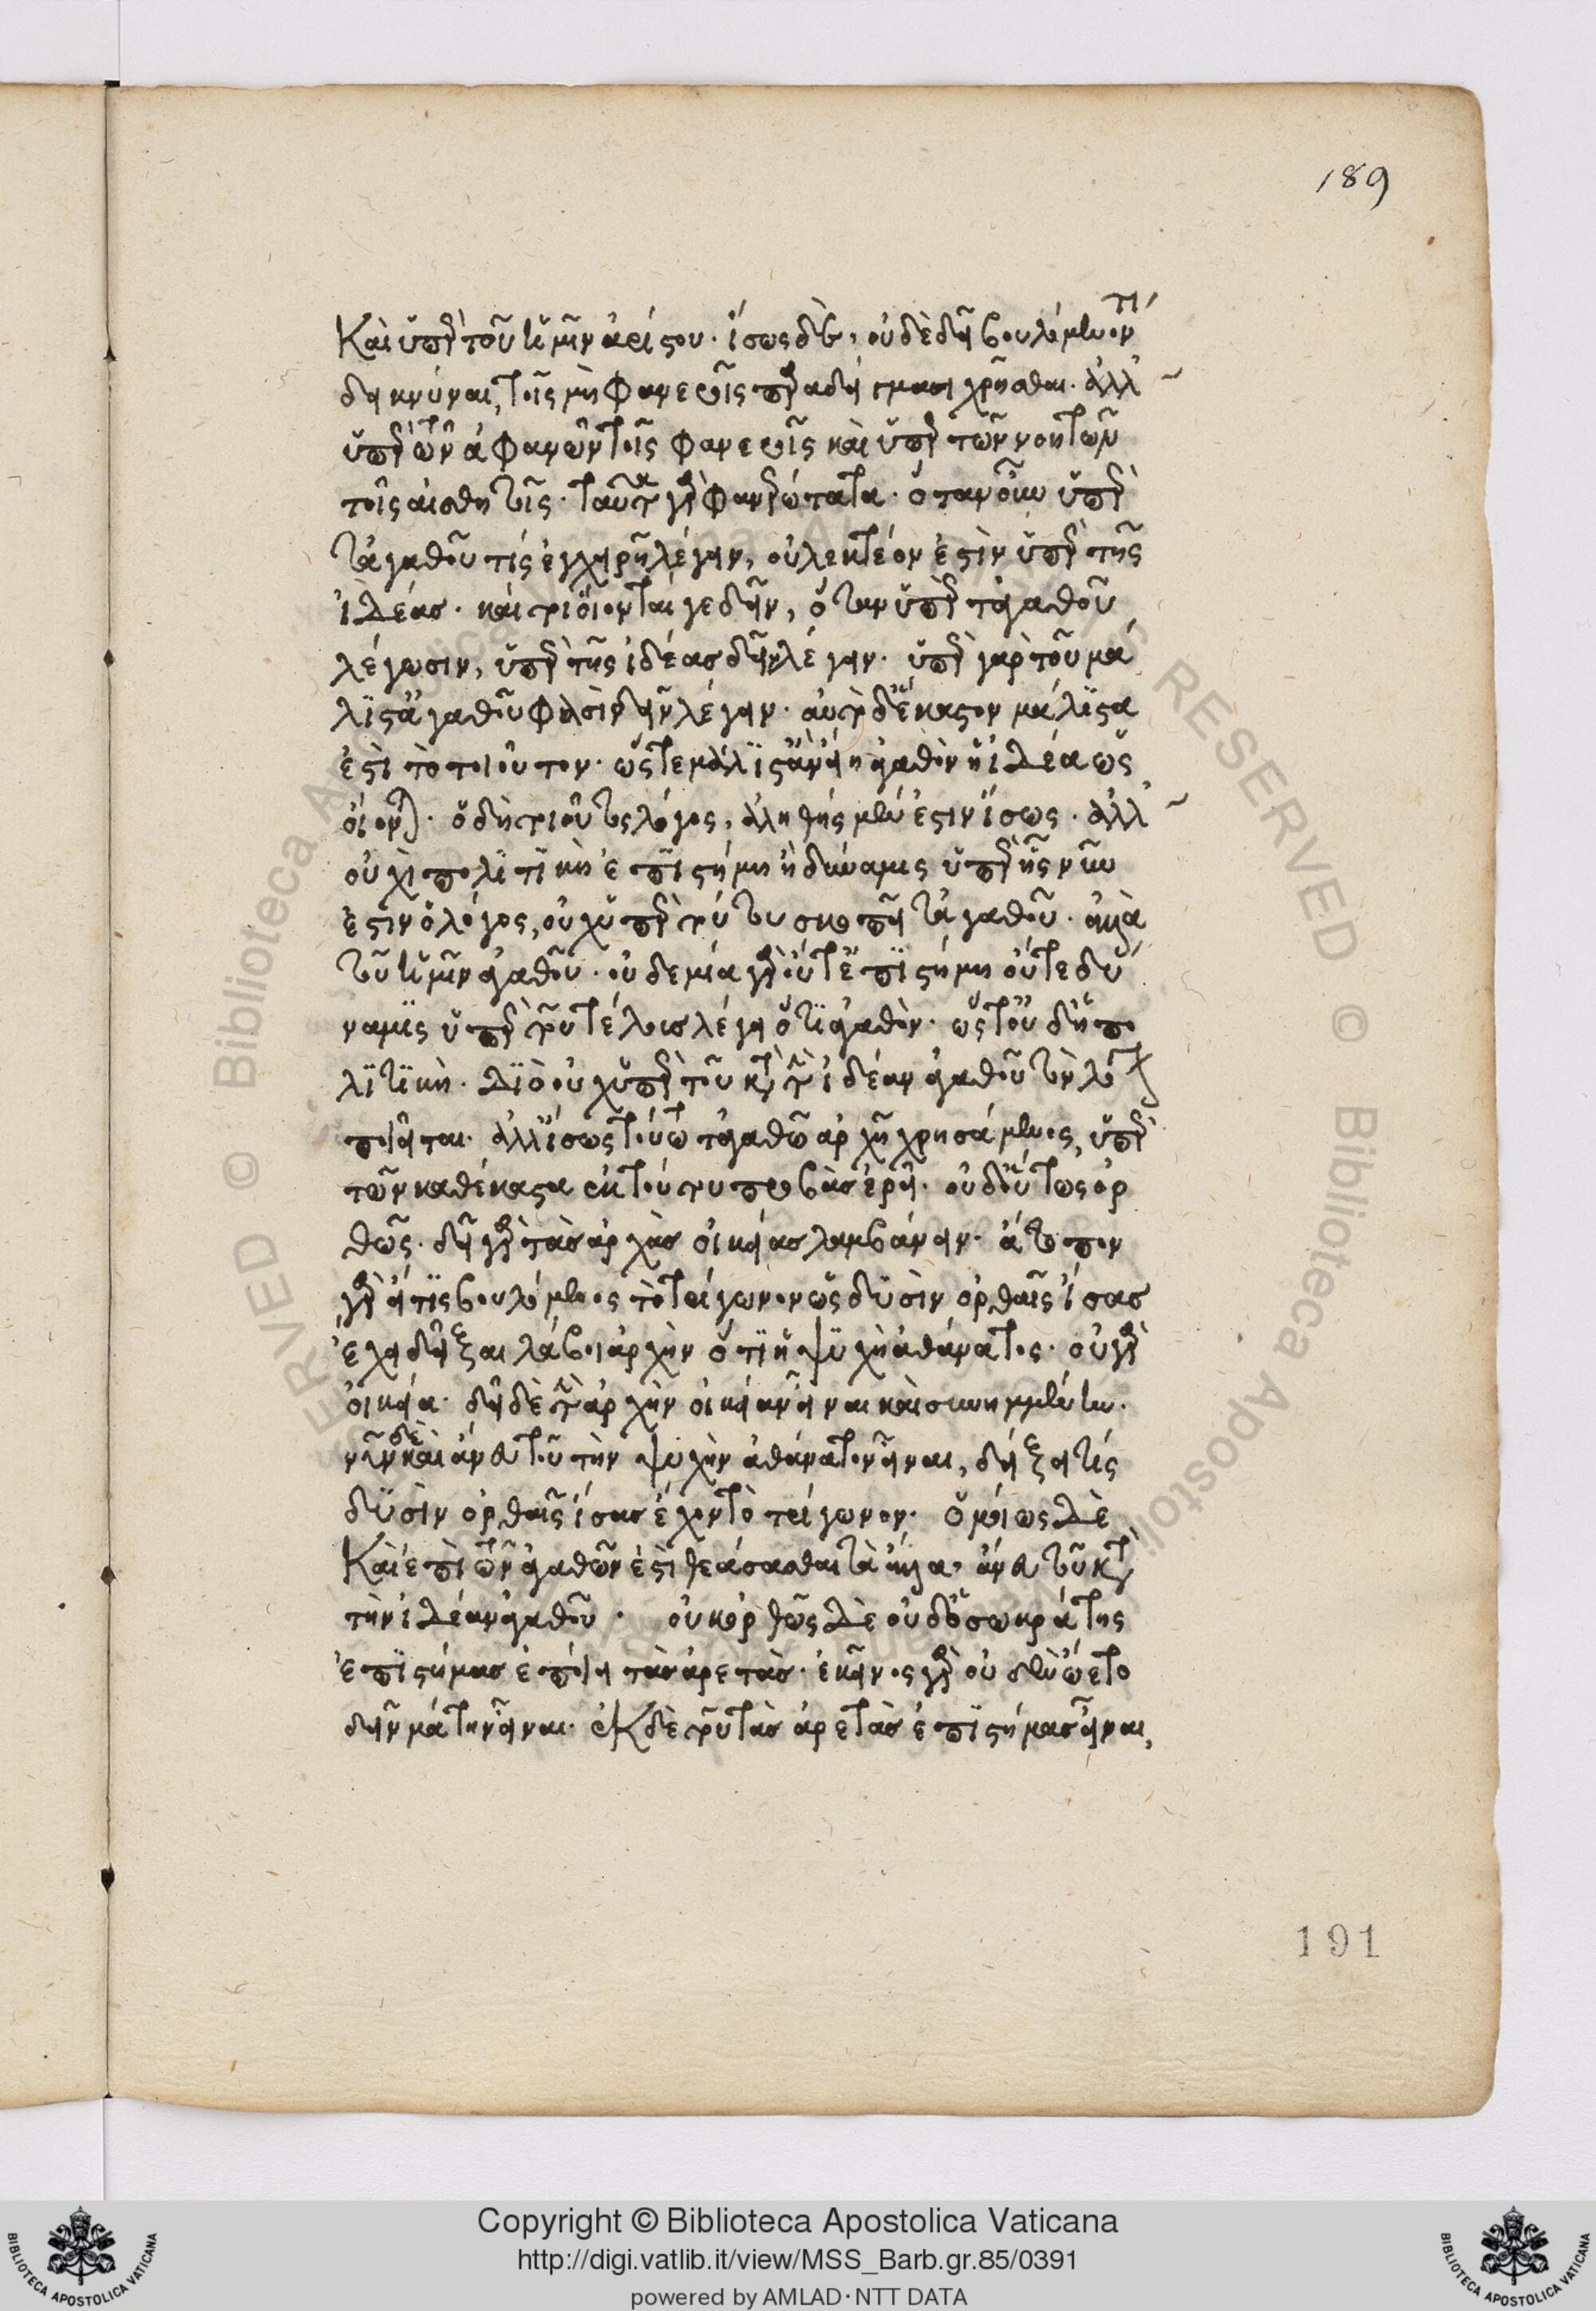 Καὶ ὑπὲρ τοῦ ἡμῖν ἀρίστου. ἴσως δ', οὐδὲ δεῖ βουλόμενόν τι
δεικνύναι, τοῖς μὴ φανεροῖς παραδείγμασι χρῆσθαι. ἀλλ'
ὑπὲρ τῶν ἀφανῶν τοῖς φανεροῖς καὶ ὑπὲρ τῶν νοητῶν
τοῖς αἰσθητοῖς. ταῦτα γὰρ φανερώτατα. ὅταν οὖν ὑπὲρ
τἀγαθοῦ τίς ἐγχειρῇ λέγειν, οὐ λεκτέον ἐστὶν ὑπὲρ τῆς
ἰδέας. καίτοι οἴονταί γε δεῖν, ὅταν ὑπὲρ τἀγαθοῦ
λέγωσιν, ὑπὲρ τῆς ἰδέας δεῖν λέγειν. ὑπὲρ γὰρ τοῦ μά
λιστ' ἀγαθοῦ φασὶν δεῖν λέγειν. αὐτὸ δ' ἕκαστον μάλιστα
ἐστὶ τὸ τοιοῦτον. ὥστε μάλιστ' ἂν εἴη ἀγαθὸν ἡ ἰδέα ὡς
οἴονται. ὁ δὴ τοιοῦτος λόγος, ἀληθής μέν ἐστιν ἴσως. ἀλλ'
οὐχὶ πολιτικὴ ἐπιστήμη ἢ δύναμις ὑπὲρ ἧς νῦν
ἐστιν ὁ λόγος, οὐχ ὑπὲρ τούτου σκοπεῖ τἀγαθοῦ. ἀλλὰ
τοῦ ἡμῖν ἀγαθοῦ. οὐδεμία γὰρ οὔτ' ἐπιστήμη οὔτε δύ
ναμις ὑπὲρ τοῦ τέλους λέγει ὅτι ἀγαθόν. ὥστ' οὐδ' ἡ πο
λιτική. Διὸ οὐχ ὑπὲρ τοῦ κατὰ τὴν ἰδέαν ἀγαθοῦ τὸν λόγον
ποιεῖται. ἀλλ' ἴσως τούτῳ τἀγαθῷ ἀρχῇ χρησάμενος, ὑπὲρ
τῶν καθέκαστα ἐκ τούτου προβὰς ἐρεῖ. οὐδ' οὕτως ὀρ
θῶς. δεῖ γὰρ τὰς ἀρχὰς οἰκείας λαμβάνειν. ἄτοπον
γὰρ εἴ τις βουλόμενος τὸ τρίγωνον ὡς δυσὶν ὀρθαῖς ἴσας
ἔχει δεῖξαι λάβοι ἀρχὴν ὅτι ἡ ψυχὴ ἀθάνατος. οὐ γὰρ
οἰκεία. δεῖ δὲ τὴν ἀρχὴν οἰκείαν εἶναι καὶ συνημμένην.
νῦν δὲ καὶ ἄνευ τοῦ τὴν ψυχὴν ἀθάνατον εἶναι, δείξει τίς
δυσὶν ὀρθαῖς ἴσας ἔχον τὸ τρίγωνον. ὁμοίως δὲ
Καὶ ἐπὶ τῶν ἀγαθῶν ἐστὶ θεάσασθαι τὰ ἄλλα, ἄνευ τοῦ κατὰ
τὴν ἰδέαν ἀγαθοῦ. οὐκ ὀρθῶς δὲ οὐδ' ὁ σωκράτης
ἐπιστήμας ἐποίει τὰς ἀρετάς. ἐκεῖνος γὰρ οὐδὲν ᾤετο
δεῖν μάτην εἶναι. ἐκ δὲ τοῦ τὰς ἀρετὰς ἐπιστήμας εἶναι,
189
191
Copyright © Biblioteca Apostolica Vaticana
http://digi.vatlib.it/view/MSS_Barb.gr.85/0391
powered by AMLAD·NTT DATA